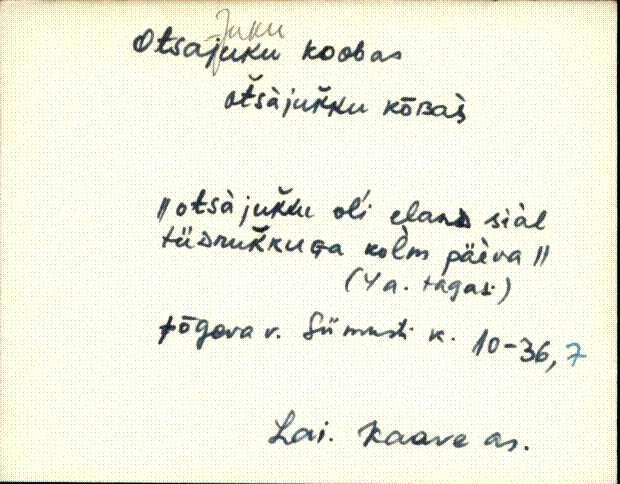 Juku
Otsajuku koobas
otšàjuǩku kōʙàs
"otšàjuǩku oĺi elanᴅ siàl
tüᴅruǩkuɢa kolm päèva"
(4 a. tagas.)
Põgova v. Siimusti k. 10-36, 7
Lai. Kaave as.